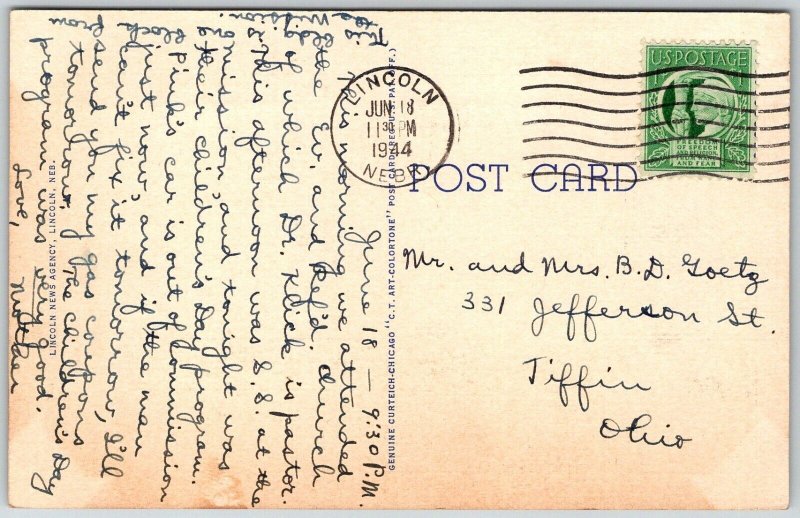 June 18 — 9:30 P.M.
This morning we attended
the Ev. and Ref'd. church
of which Dr. Klick is pastor.
This afternoon was S.S. at the
mission, and tonight was
their children's Day program.
Pink's car is out of commission
just now, and if the man
can't fix it tomorrow, I'll
send you my gas coupons
tomorrow. The children's Day
program was very good.
Love,
Mother
This is
the Old
Mission
one
block
from
LINCOLN
JUN 18
11 30 PM
1944
NEBR
U.S. POSTAGE
FREEDOM
OF SPEECH
AND RELIGION
FROM WANT
AND FEAR
POST CARD
Mr. and Mrs. B. D. Goetz
331 Jefferson St.
Tiffin
Ohio
GENUINE CURTEICH-CHICAGO "C. T. ART-COLORTONE" POST CARD (REG. U.S. PAT. OFF.)
LINCOLN NEWS AGENCY, LINCOLN, NEB.